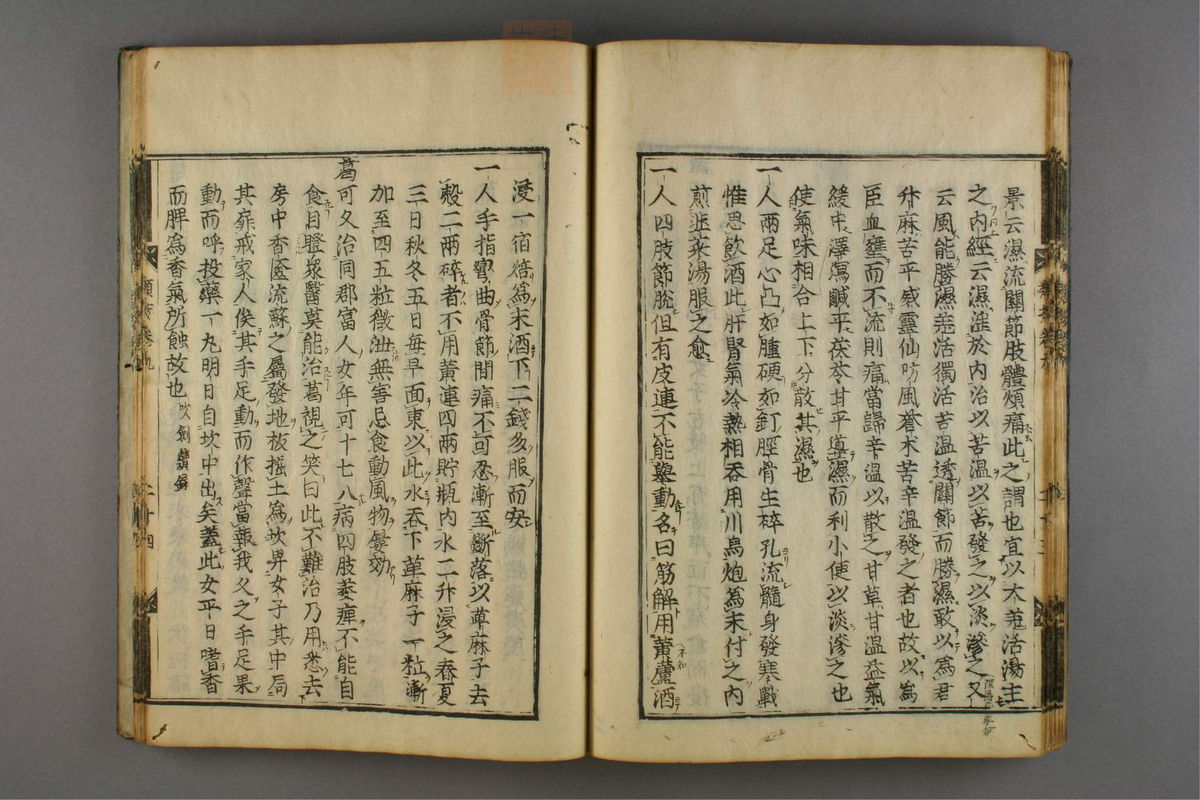 景云濕流關節肢體煩痛此之謂也宜以大羌活湯主
之內經云濕淫於內治以苦溫以苦發之以淡滲之又
云風能勝濕羌活獨活苦溫透關節而勝濕敢以爲君
升麻苦平威靈仙防風蒼术苦辛溫發之者也故以爲
臣血壅而不流則痛當歸辛溫以散之甘草甘溫益氣
緩中澤瀉鹹平茯苓甘平導濕而利小便以淡滲之也
使氣味相合上下分散其濕也
一人兩足心凸如腫硬如釘脛骨生碎孔流髓身發寒戰
惟思飲酒此肝腎氣冷熱相吞用川烏炮爲末付之內
煎韭菜湯服之愈
一人四肢節脫但有皮連不能舉動名曰筋解用黃蘆酒
浸一宿焙爲末酒下二錢多服而安
一人手指彎曲骨節間痛不可忍漸至斷落以萆麻子去
殼二兩碎者不用黃連四兩貯瓶內水二升浸之春夏
三日秋冬五日每早面東以此水吞下萆麻子一粒漸
加至四五粒微泄無害忌食動風物屢効
葛可久治同郡富人女年可十七八病四肢萎痺不能自
食目瞪衆醫莫能治葛視之笑曰此不難治乃用悉去
房中香奩流蘇之屬發地板掘土爲坎舁女子其中扃
其扉戒家人俟其手足動而作聲當報我久之手足果
動而呼投藥一丸明日自坎中出矣蓋此女平日嗜香
而脾爲香氣所蝕故也
類案卷九
二十四